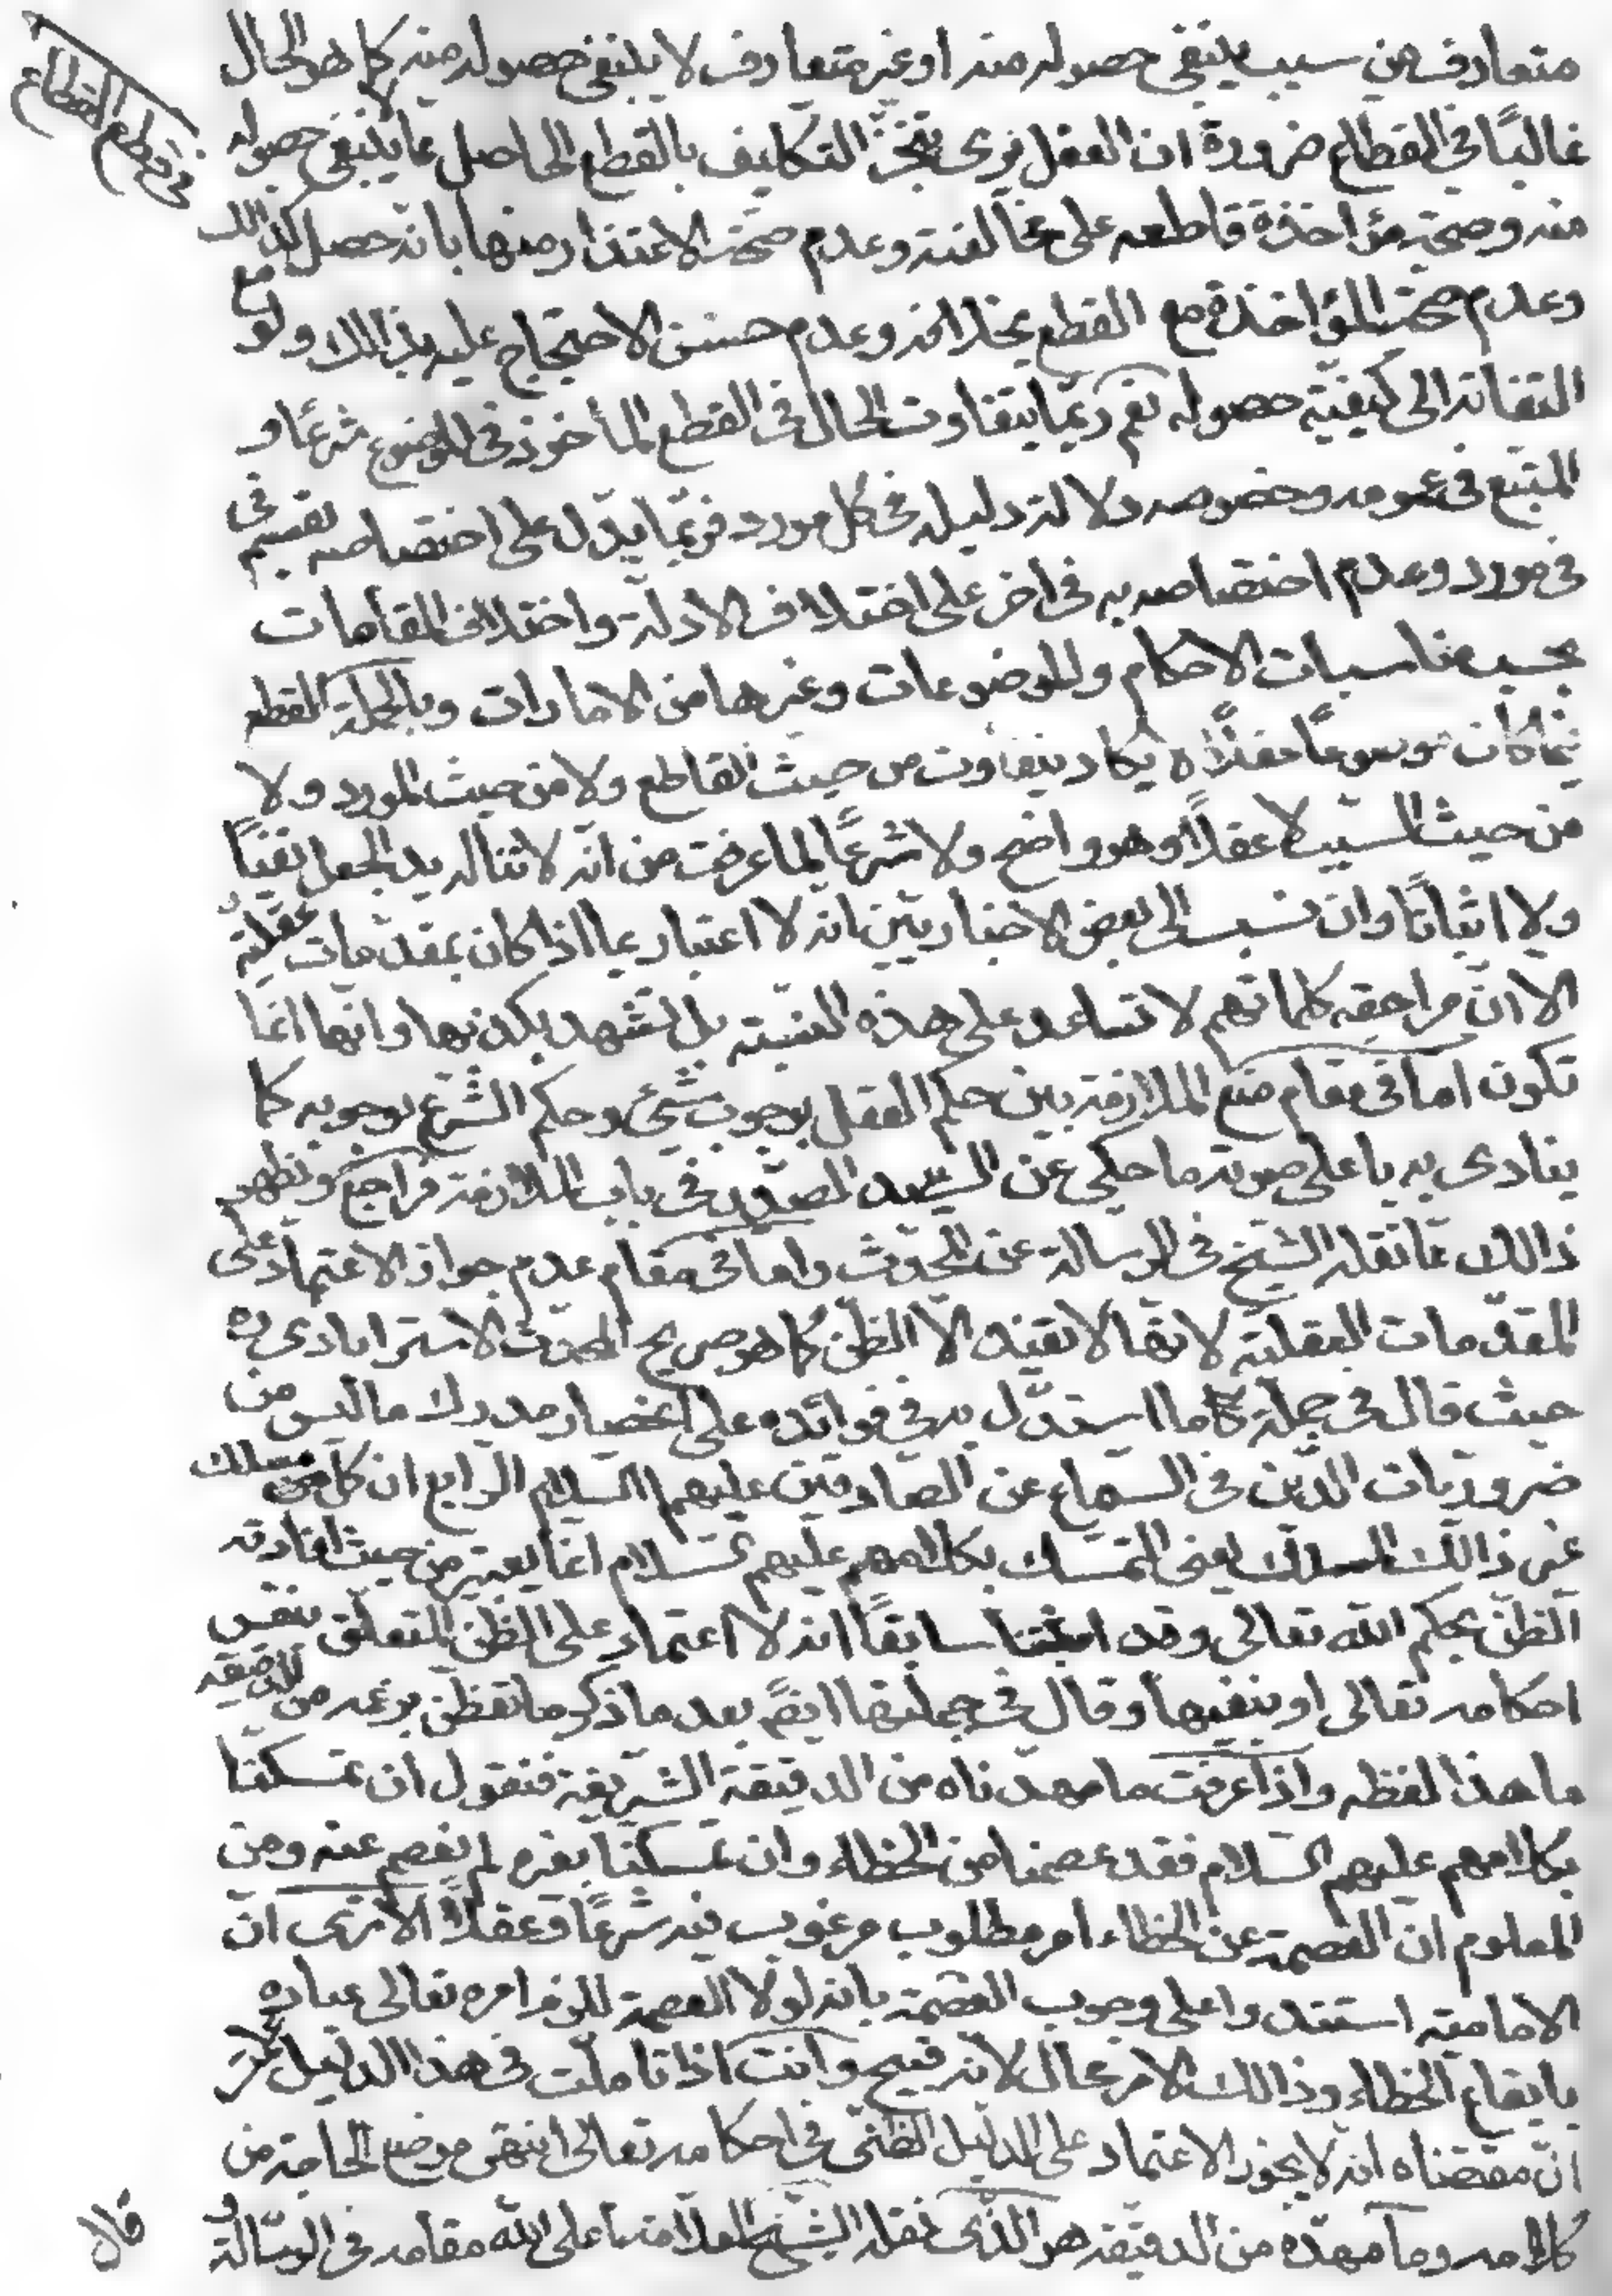 في قطع القطاع
متعارف من سبب ينبغي حصوله منه او غير متعارف لا ينبغي حصوله منه كما هو الحال
غالبًا في القطاع ضرورة ان العقل يرى تنجّز التكليف بالقطع الحاصل مما لا ينبغي حصوله
منه وصحة مؤاخذة قاطعه على مخالفته وعدم صحة الاعتذار منها بانه حصل كذالك
وعدم صحة المؤاخذة مع القطع بخلافه وعدم حسن الاحتجاج عليه بذالك ولو مع
التفاته الى كيفية حصوله نعم ربّما يتفاوت الحال في القطع المأخوذ في الموضوع شرعًا و
المتبع في عمومه وخصوصه دلالة دليله في كل مورد فربّما يدّل على اختصاصه بقسم في
في مورد وعدم اختصاصه به في اخر على اختلاف الادلة واختلاف المقامات
بحسب مناسبات الاحكام والموضوعات وغيرها من الامارات وبالجملة القطع
فيما كان موضوعًا عقلًا لا يكاد يتفاوت من حيث القاطع ولا من حيث المورد ولا
من حيث السبب لا عقلًا وهو واضح ولا شرعًا لما عرفت من انه لا تناله يد الجعل نفيًا
ولا اثباتًا وان نسب الى بعض الاخباريّين انه لا اعتبار بما اذا كان بمقدّمات عقليّة
الا انّ مراجعة كلماتهم لا تساعد على هذه النسبة بل تشهد بكذبها وانّها انّما
تكون اما في مقام منع الملازمة بين حكم العقل بوجوب شيء وحكم الشرع بوجوبه كما
ينادى به باعلى صوته ما حكى عن السيد الصدر في باب الملازمة فراجع ويظهر
ذالك مما نقله الشيخ في الرسالة عن المحدّث واما في مقام عدم جواز الاعتماد على
المقدّمات العقليّة لانّها لا تفيد الا الظن كما هو صريح المحدّث الاسترابادى ره
حيث قال في جملة ما استدّل به في فوائده على انحصار مدرك ما ليس من
ضروريات الدّين في السماع عن الصادقين عليهم السلام الرابع ان كل مسلك
غير ذالك المسلك يعني التمسك بكلامهم عليهم السلام انّما يعتبر من حيث افادته
الظنّ بحكم الله تعالى وقد اثبتنا سابقًا انه لا اعتماد على الظن المتعلّق بنفس
احكامه تعالى او بنفيها وقال في جملتها ايضًا بعد ما ذكر ما تفطّن بزعمه من الدقيقة
ما هذا لفظه واذا عرفت ما مهدناه من الدقيقة الشريفة فنقول ان تمسكنا
بكلامهم عليهم السلام فقد عصمنا من الخطاء وان تمسكنا بغيره لم نعصم عنه ومن
المعلوم انّ العصمة عن الخطاء امر مطلوب مرغوب فيه شرعًا وعقلًا الا ترى انّ
الاماميّة استندوا على وجوب العصمة بانه لولا العصمة للزم امره تعالى عباده
بايقاع الخطاء وذالك الامر محال لانه قبيح وانت اذا تاملت في هذا الدليل علمت
انّ مقتضاه انه لا يجوز الاعتماد على الدليل الظنّي في احكامه تعالى انتهى موضع الحاجة من
كلامه وما مهده من الدقيقة هو الذّى نقله الشيخ العلامة اعلى الله مقامه في الرسالة و
قال